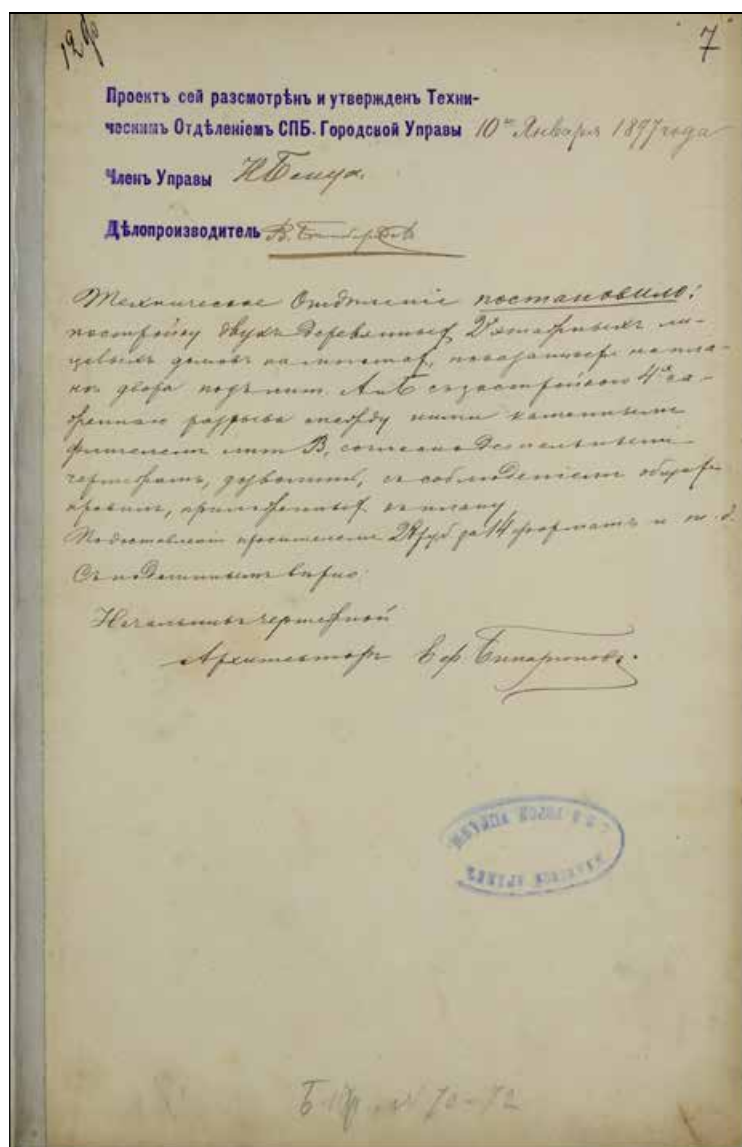 7
Проектъ сей разсмотрѣнъ и утвержденъ Техни-
ческимъ Отдѣленіемъ СПБ. Городской Управы 10го Января 1897 года
Членъ Управы Н Бенуа.
Дѣлопроизводитель В.
Техническое Отдѣленіе постановило:
постройку двухъ деревянныхъ 2хэтажныхъ ли-
цевыхъ домовъ на мѣстахъ, показанныхъ на пла-
нѣ двора подъ лит. А и Б съ застройкою 4хъ са-
женнаго разрыва между ними каменнымъ
флигелемъ лит В, согласно детальнымъ
чертежамъ, дозволить, съ соблюденіемъ общихъ
правилъ, приложенныхъ къ плану
представленіи просителемъ 28 руб за 14 форматъ и т. д.
Съ подлиннымъ вѣрно:
Начальникъ чертежной
Архитекторъ
С.П.Б. ГОРОД. УПРАВЫ
АРХИВЪ
70-72